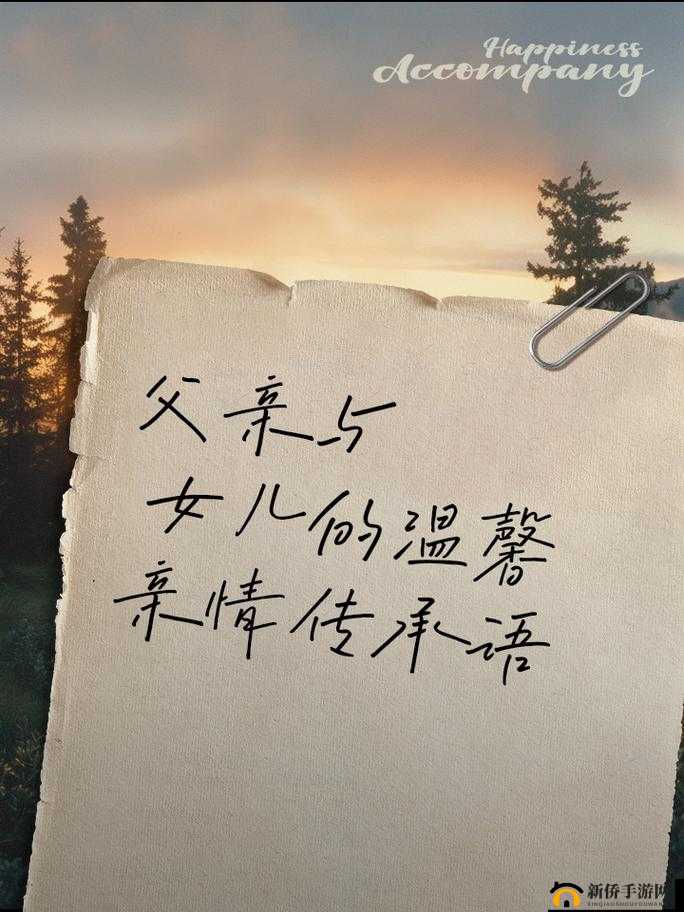 Happiness
Accompany
父亲与
女儿的温馨
亲情传承语
新侨手游网
XINQIAOSHOUYOUWANG